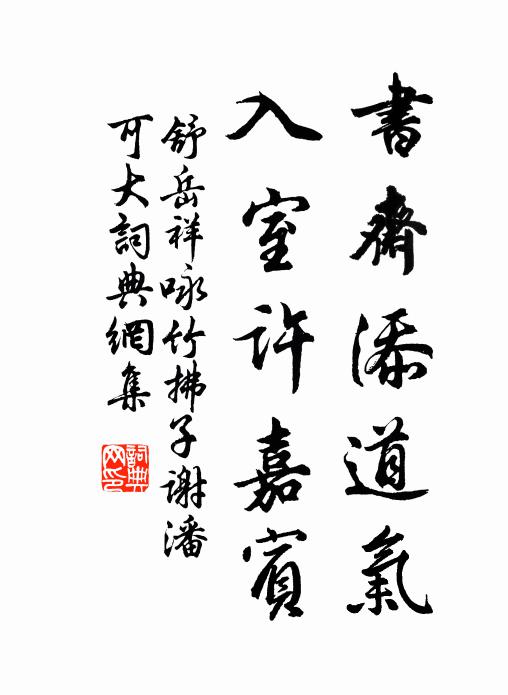 書齋添道氣
入室許嘉賓
舒岳祥咏竹拂子謝潘
可大詞典網集
詞典网印